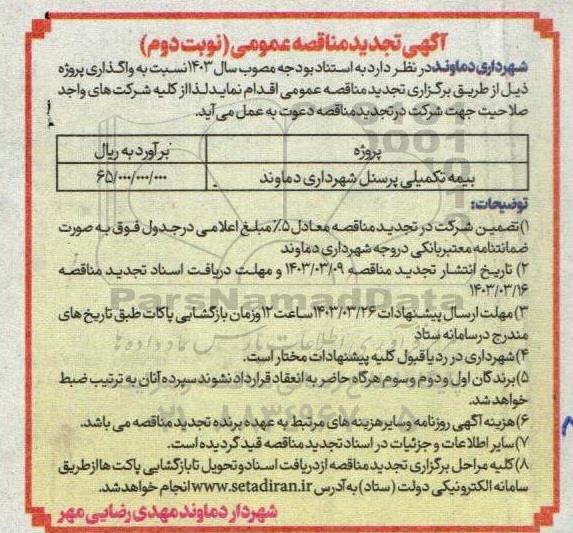 آگهی تجدید مناقصه عمومی (نوبت دوم)
شهرداری دماوند در نظر دارد به استناد بودجه مصوب سال ۱۴۰۳ نسبت به واگذاری پروژه
ذیل از طریق برگزاری تجدید مناقصه عمومی اقدام نماید لذا از کلیه شرکت های واجد
صلاحیت جهت شرکت در تجدید مناقصه دعوت به عمل می آید.
پروژه برآورد به ریال
بیمه تکمیلی پرسنل شهرداری دماوند ۶۵/۰۰۰/۰۰۰/۰۰۰
توضیحات:
۱) تضمین شرکت در تجدید مناقصه معادل ۵٪ مبلغ اعلامی در جدول فوق به صورت
ضمانتنامه معتبر بانکی در وجه شهرداری دماوند
۲) تاریخ انتشار تجدید مناقصه ۱۴۰۳/۰۳/۰۹ و مهلت دریافت اسناد تجدید مناقصه
۱۴۰۳/۰۳/۱۶
۳) مهلت ارسال پیشنهادات ۱۴۰۳/۰۳/۲۶ ساعت ۱۲ و زمان بازگشایی پاکات طبق تاریخ های
مندرج در سامانه ستاد
۴) شهرداری در رد یا قبول کلیه پیشنهادات مختار است.
۵) برندگان اول و دوم و سوم هرگاه حاضر به انعقاد قرارداد نشوند سپرده آنان به ترتیب ضبط
خواهد شد.
۶) هزینه آگهی روزنامه و سایر هزینه های مرتبط به عهده برنده تجدید مناقصه می باشد.
۷) سایر اطلاعات و جزئیات در اسناد تجدید مناقصه قید گردیده است.
۸) کلیه مراحل برگزاری تجدید مناقصه از دریافت اسناد و تحویل تا بازگشایی پاکت ها از طریق
سامانه الکترونیکی دولت (ستاد) به آدرس www.setadiran.ir انجام خواهد شد.
شهردار دماوند مهدی رضایی مهر
ParsNamadData